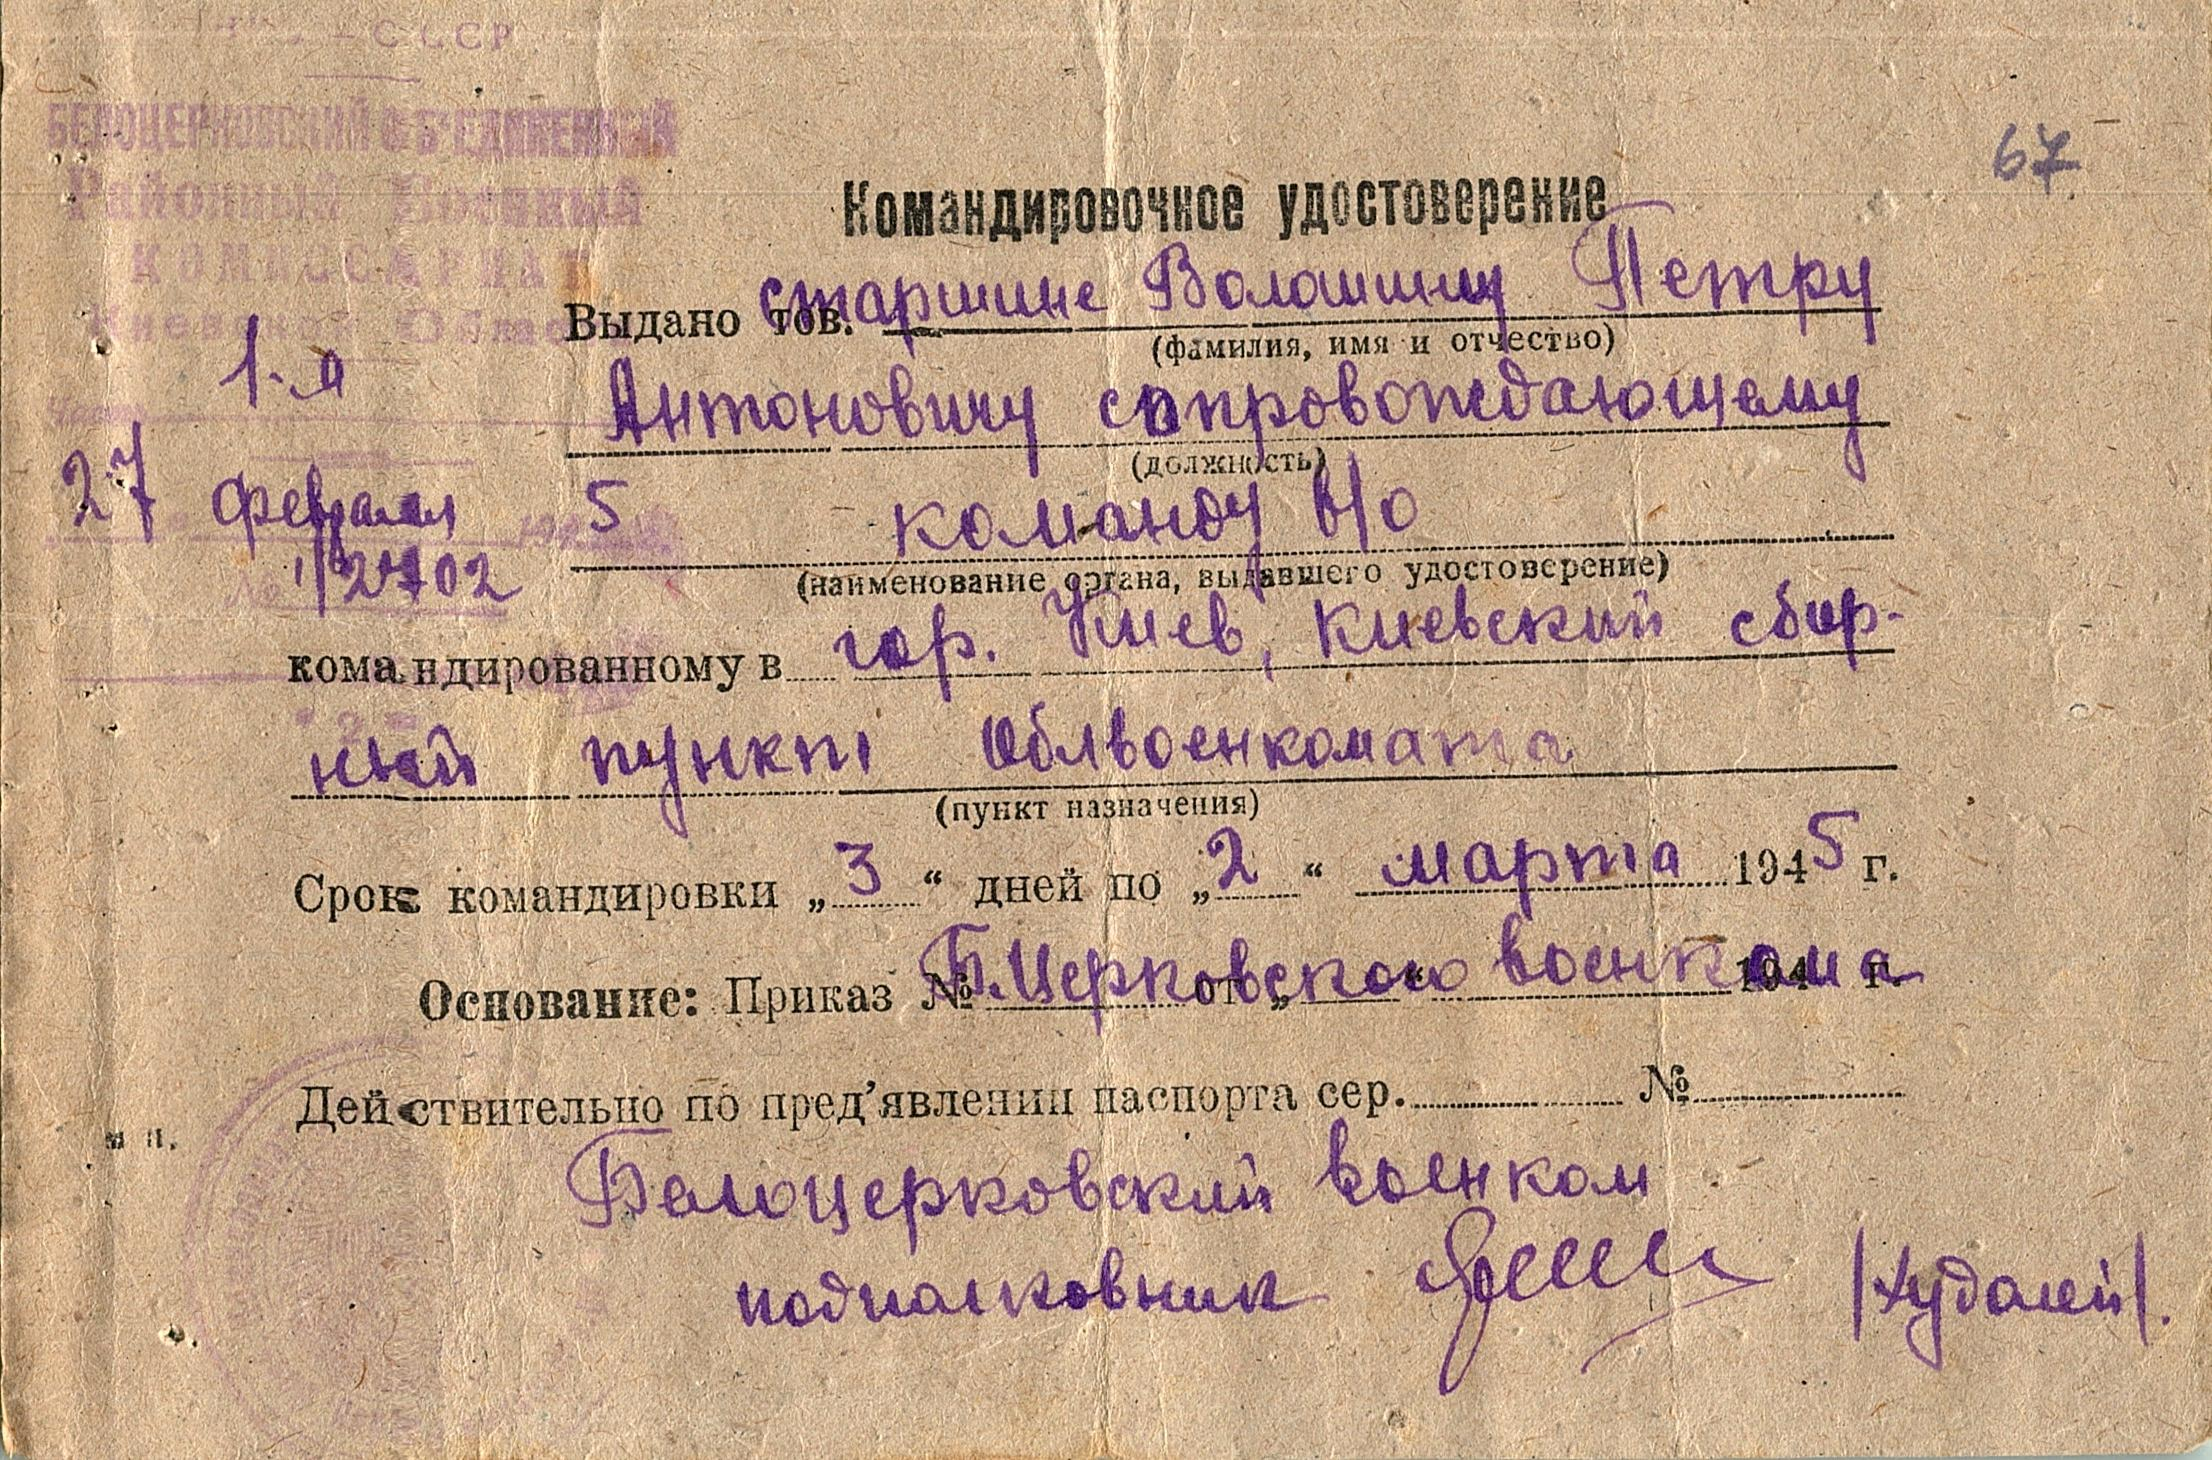 СССР
БЕЛОЦЕРКОВСКИЙ ОБ'ЕДИНЕННЫЙ
Районный Военный
КОМИССАРИАТ
Киевской Облас
67
Командировочное удостоверение
Выдано тов. старшине Волошину Петру
(фамилия, имя и отчество)
1-я
Часть
Антоновичу сопровождающему
(должность)
27 февраля 194 5
команду в/о
(наименование органа, выдавшего удостоверение)
№ 1/2702
командированному в гор. Киев, Киевский сбор-
ный пункт Облвоенкомата
(пункт назначения)
Срок командировки „3“ дней по „2“ марта 1945 г.
Основание: Приказ № Б.Церковского военкома от „ “ 194 г.
Действительно по пред'явлении паспорта сер. №
м п.
Белоцерковский военком
подполковник /Худолей/.